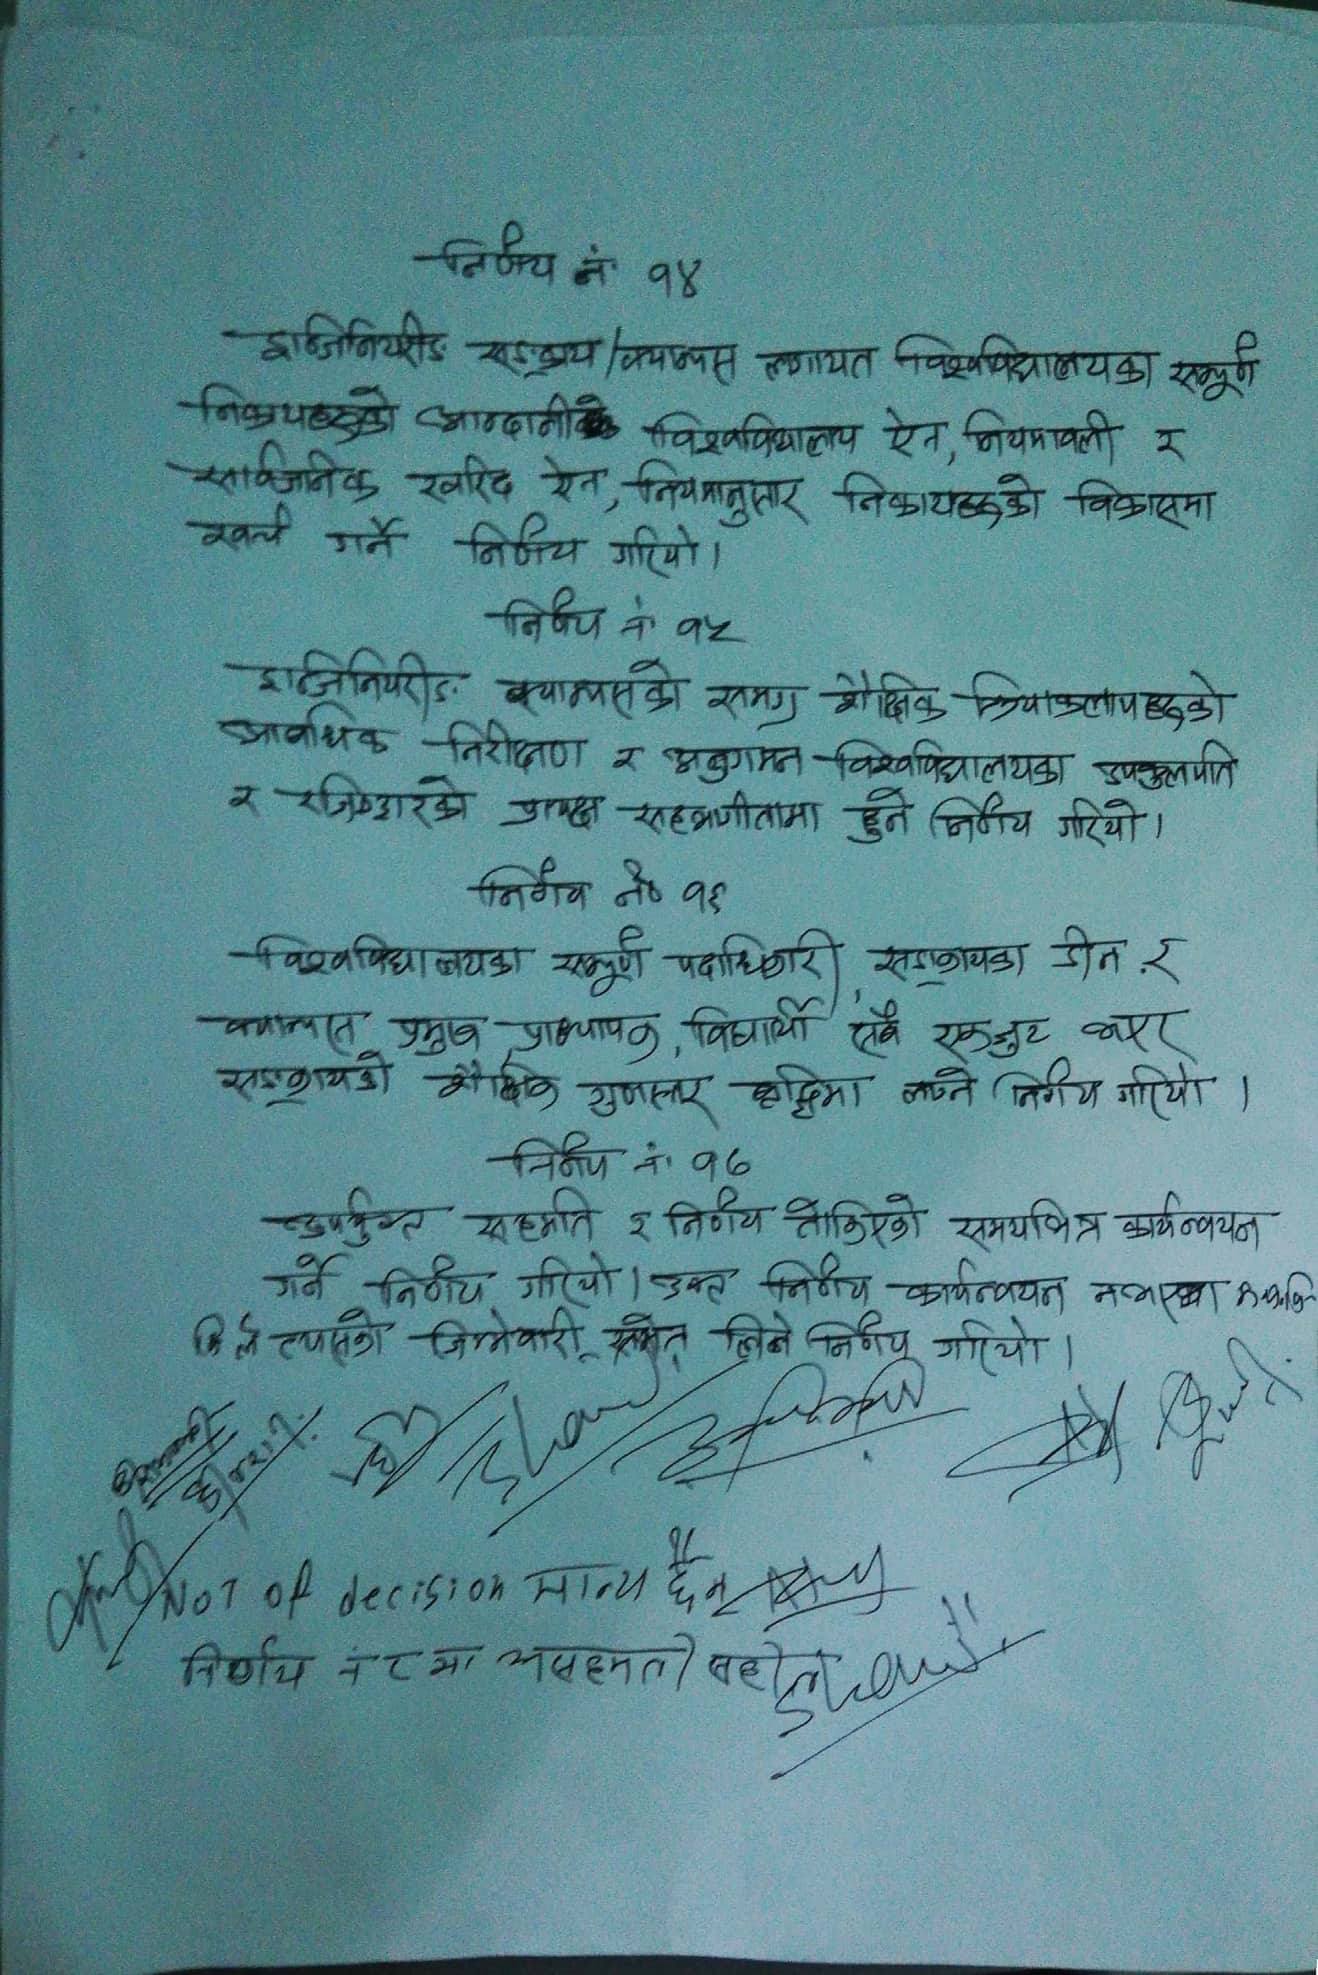 निर्णय नं. १४
इन्जिनियरीङ सङ्काय/क्याम्पस लगायत विश्वविद्यालयका सम्पूर्ण
निकायहरुको आम्दानी विश्वविद्यालय ऐन, नियमावली र
सार्वजनिक खरिद ऐन, नियमानुसार निकायहरुको विकासमा
खर्च गर्ने निर्णय गरियो।
निर्णय नं. १५
इन्जिनियरीङ क्याम्पसको समग्र शैक्षिक क्रियाकलापहरुको
आवधिक निरीक्षण र अनुगमन विश्वविद्यालयका उपकुलपति
र रजिष्ट्रारको प्रत्यक्ष सहभागीतामा हुने निर्णय गरियो।
निर्णय नं० १६
विश्वविद्यालयका सम्पूर्ण पदाधिकारी, सङ्कायका डीन र
क्याम्पस प्रमुख प्राध्यापक, विद्यार्थी सबै एकजुट भएर
सङ्कायको शैक्षिक गुणस्तर बृद्धिमा लाग्ने निर्णय गरियो।
निर्णय नं. १७
उपर्युक्त सहमति र निर्णय तोकिएको समयभित्र कार्यन्वयन
गर्ने निर्णय गरियो। उक्त निर्णय कार्यन्वयन नभएमा
ले त्यसको जिम्मेवारी समेत लिने निर्णय गरियो।
NOT of decision मान्य छैन
निर्णय नं ८ मा असहमती